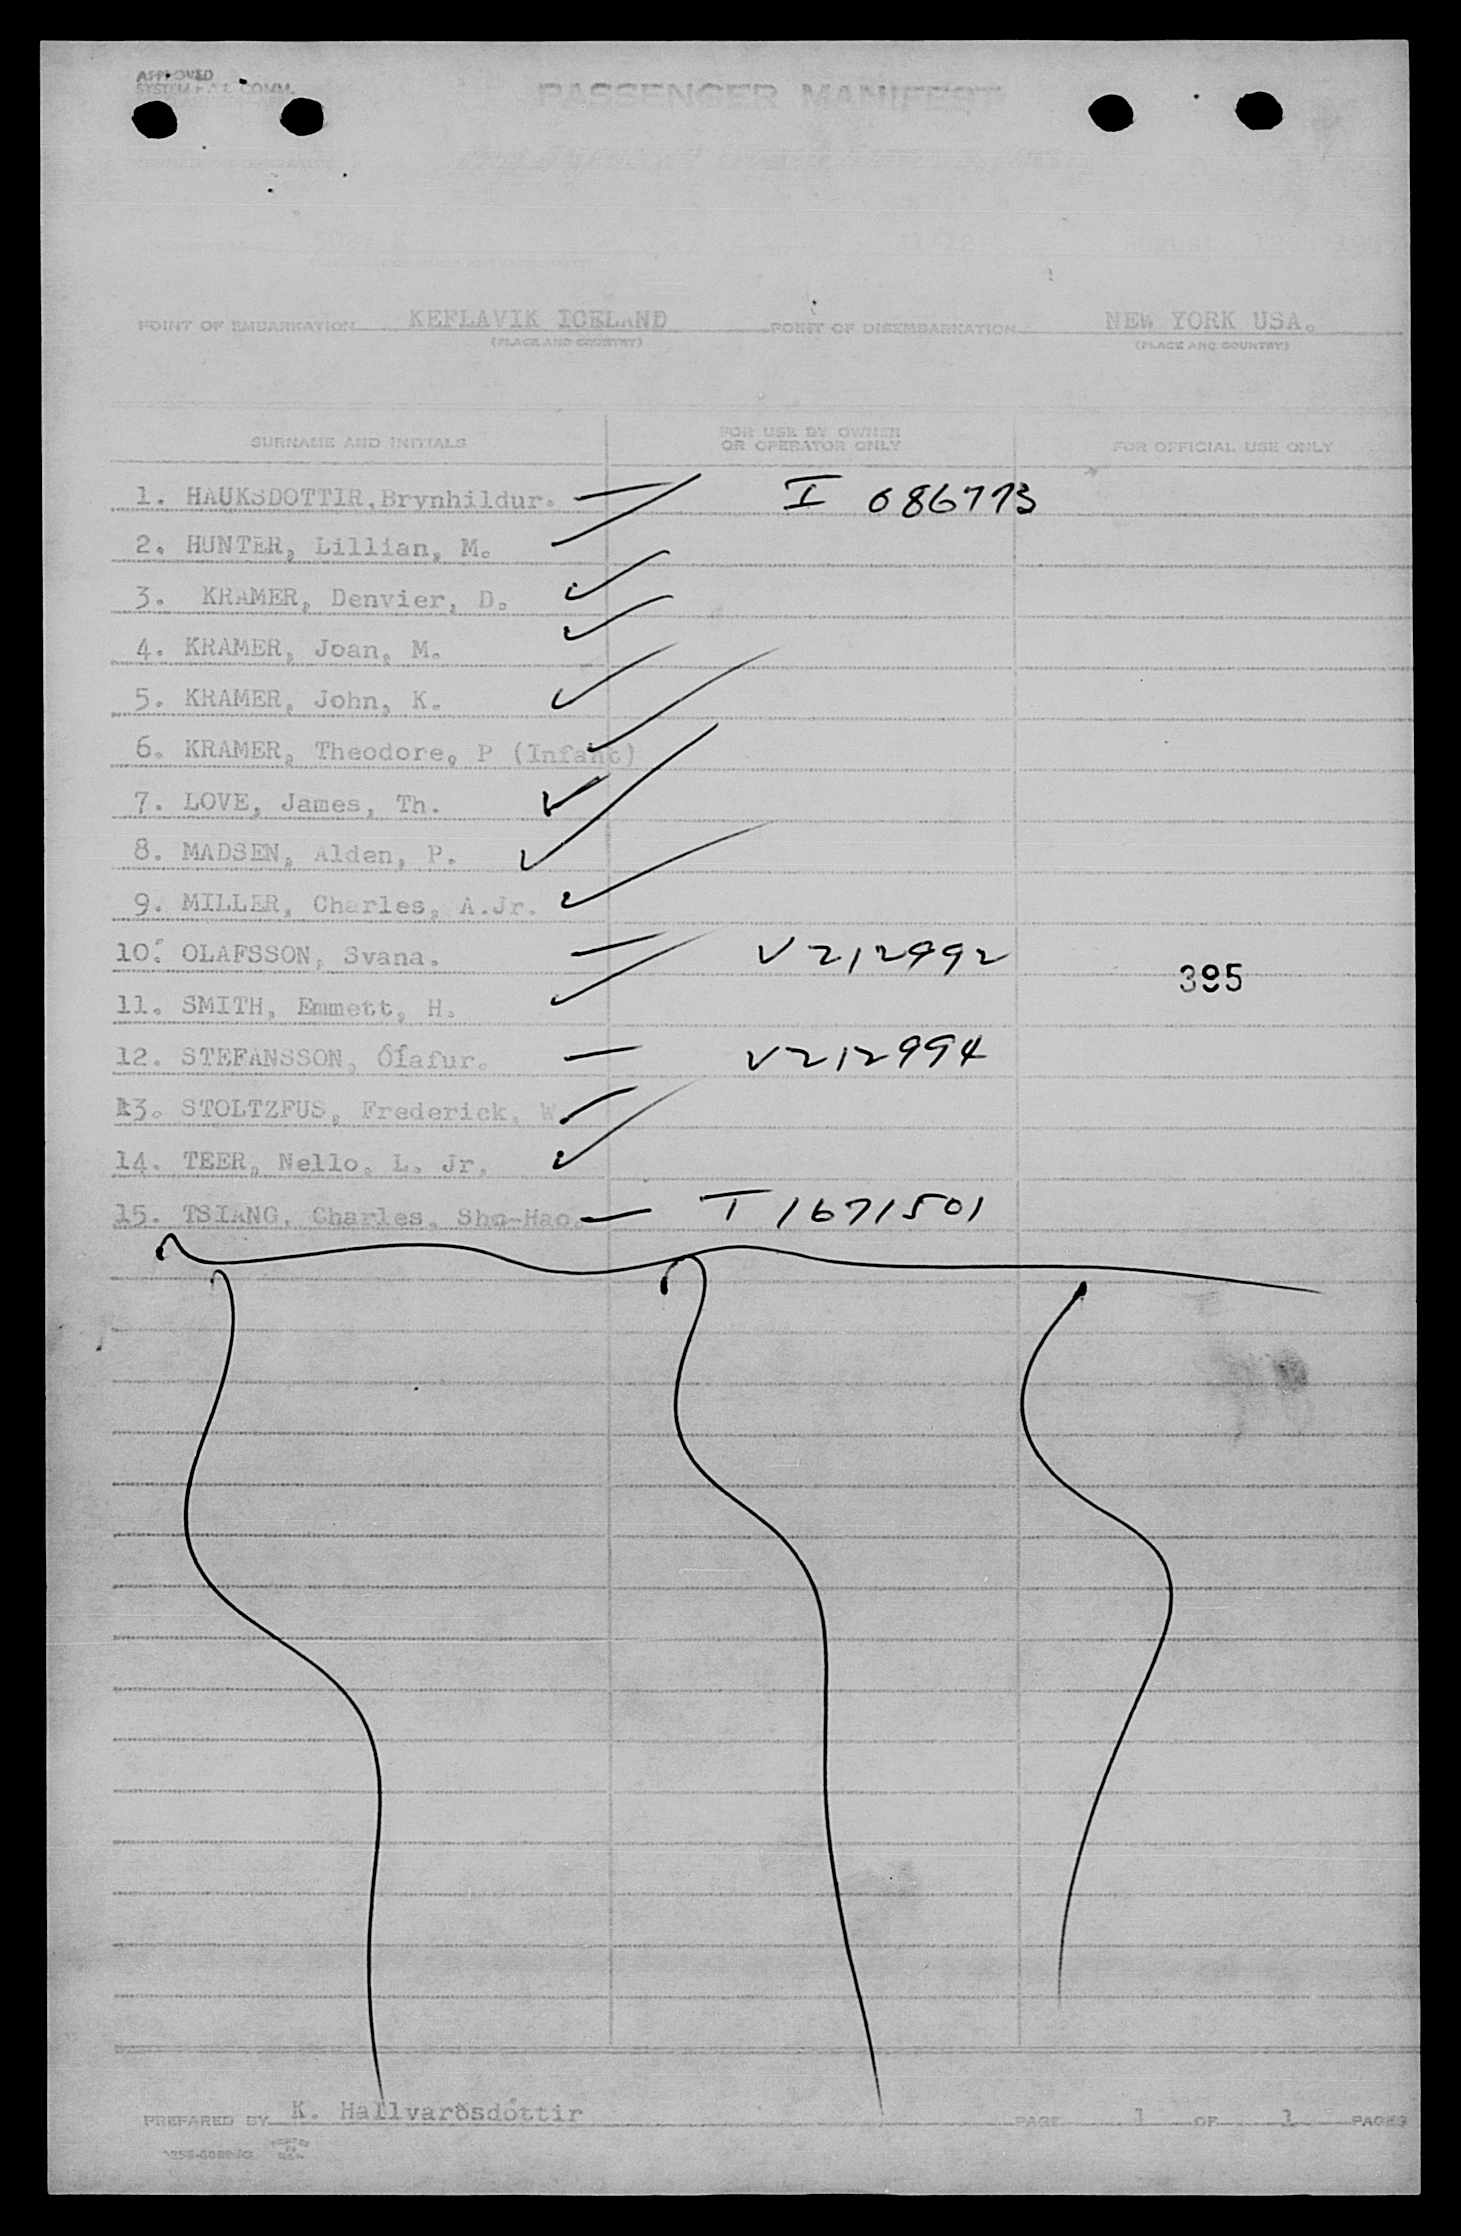 APPROVED
SYSTEM F & A COMM.
PASSENGER MANIFEST
August 1
POINT OF EMBARKATION KEFLAVIK ICELAND POINT OF DISEMBARKATION NEW YORK USA.
(PLACE AND COUNTRY) (PLACE AND COUNTRY)
SURNAME AND INITIALS FOR USE BY OWNER OR OPERATOR ONLY FOR OFFICIAL USE ONLY
1. HAUKSDOTTIR,Brynhildur. I 686773
2. HUNTER, Lillian, M.
3. KRAMER, Denvier, D.
4. KRAMER, Joan, M.
5. KRAMER, John, K.
6. KRAMER, Theodore, P (Infant)
7. LOVE, James, Th.
8. MADSEN, Alden, P.
9. MILLER, Charles, A.Jr.
10. OLAFSSON, Svana. V212992
395
11. SMITH, Emmett, H.
12. STEFANSSON, Ólafur. V212994
13. STOLTZFUS, Frederick, W.
14. TEER, Nello, L. Jr.
15. TSIANG, Charles, Shu-Hao. T 1671501
PREPARED BY K. Hallvarðsdóttir PAGE 1 OF 1 PAGES